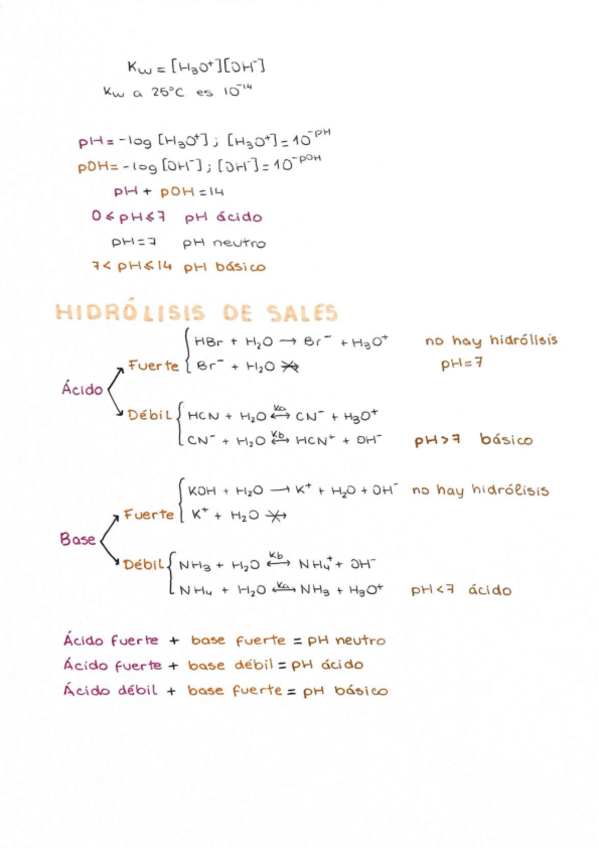 Kw = [H₃O⁺][OH⁻]
Kw a 25°C es 10⁻¹⁴
pH = -log [H₃O⁺] ; [H₃O⁺] = 10^-pH
pOH = -log [OH⁻] ; [OH⁻] = 10^-pOH
pH + pOH = 14
0 ≤ pH ≤ 7 pH ácido
pH = 7 pH neutro
7 < pH ≤ 14 pH básico
HIDRÓLISIS DE SALES
HBr + H₂O → Br⁻ + H₃O⁺ no hay hidrólisis
Fuerte Br⁻ + H₂O ↛ pH = 7
Ácido
Débil HCN + H₂O ⟷ Ka CN⁻ + H₃O⁺
CN⁻ + H₂O ⟷ Kb HCN⁺ + OH⁻ pH > 7 básico
KOH + H₂O → K⁺ + H₂O + OH⁻ no hay hidrólisis
Fuerte K⁺ + H₂O ↛
Base
Débil NH₃ + H₂O ⟷ Kb NH₄⁺ + OH⁻
NH₄ + H₂O ⟷ Ka NH₃ + H₃O⁺ pH < 7 ácido
Ácido fuerte + base fuerte = pH neutro
Ácido fuerte + base débil = pH ácido
Ácido débil + base fuerte = pH básico